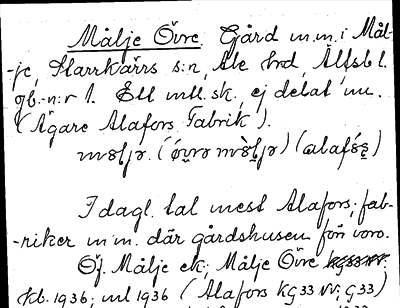 Målje Övre. Gård m.m. i Mål-
-je, Starrkärrs s:n, Ale hrd, Älfsb l.
gb.-n:r 1. Ett mtl. sk., ej delat nu.
(Ägare Alafors Fabrik).
I dagl. tal mest Alafors; fab-
-riker m.m. där gårdshusen förr voro.
Öf. Målje ek; Målje Övre
kb. 1936; ml 1936 (Alafors KG33 NV; G33)